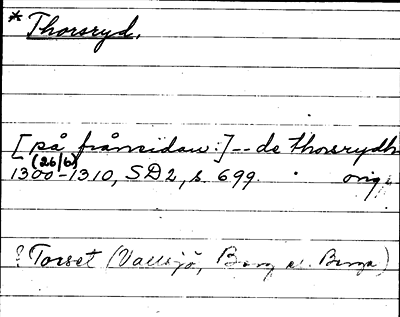 * Thorsryd.
[på frånsidan:] -- de thorsrydh
(26/6)
1300-1310, SD2, s. 699. orig.
? Torset (Vallsjö,